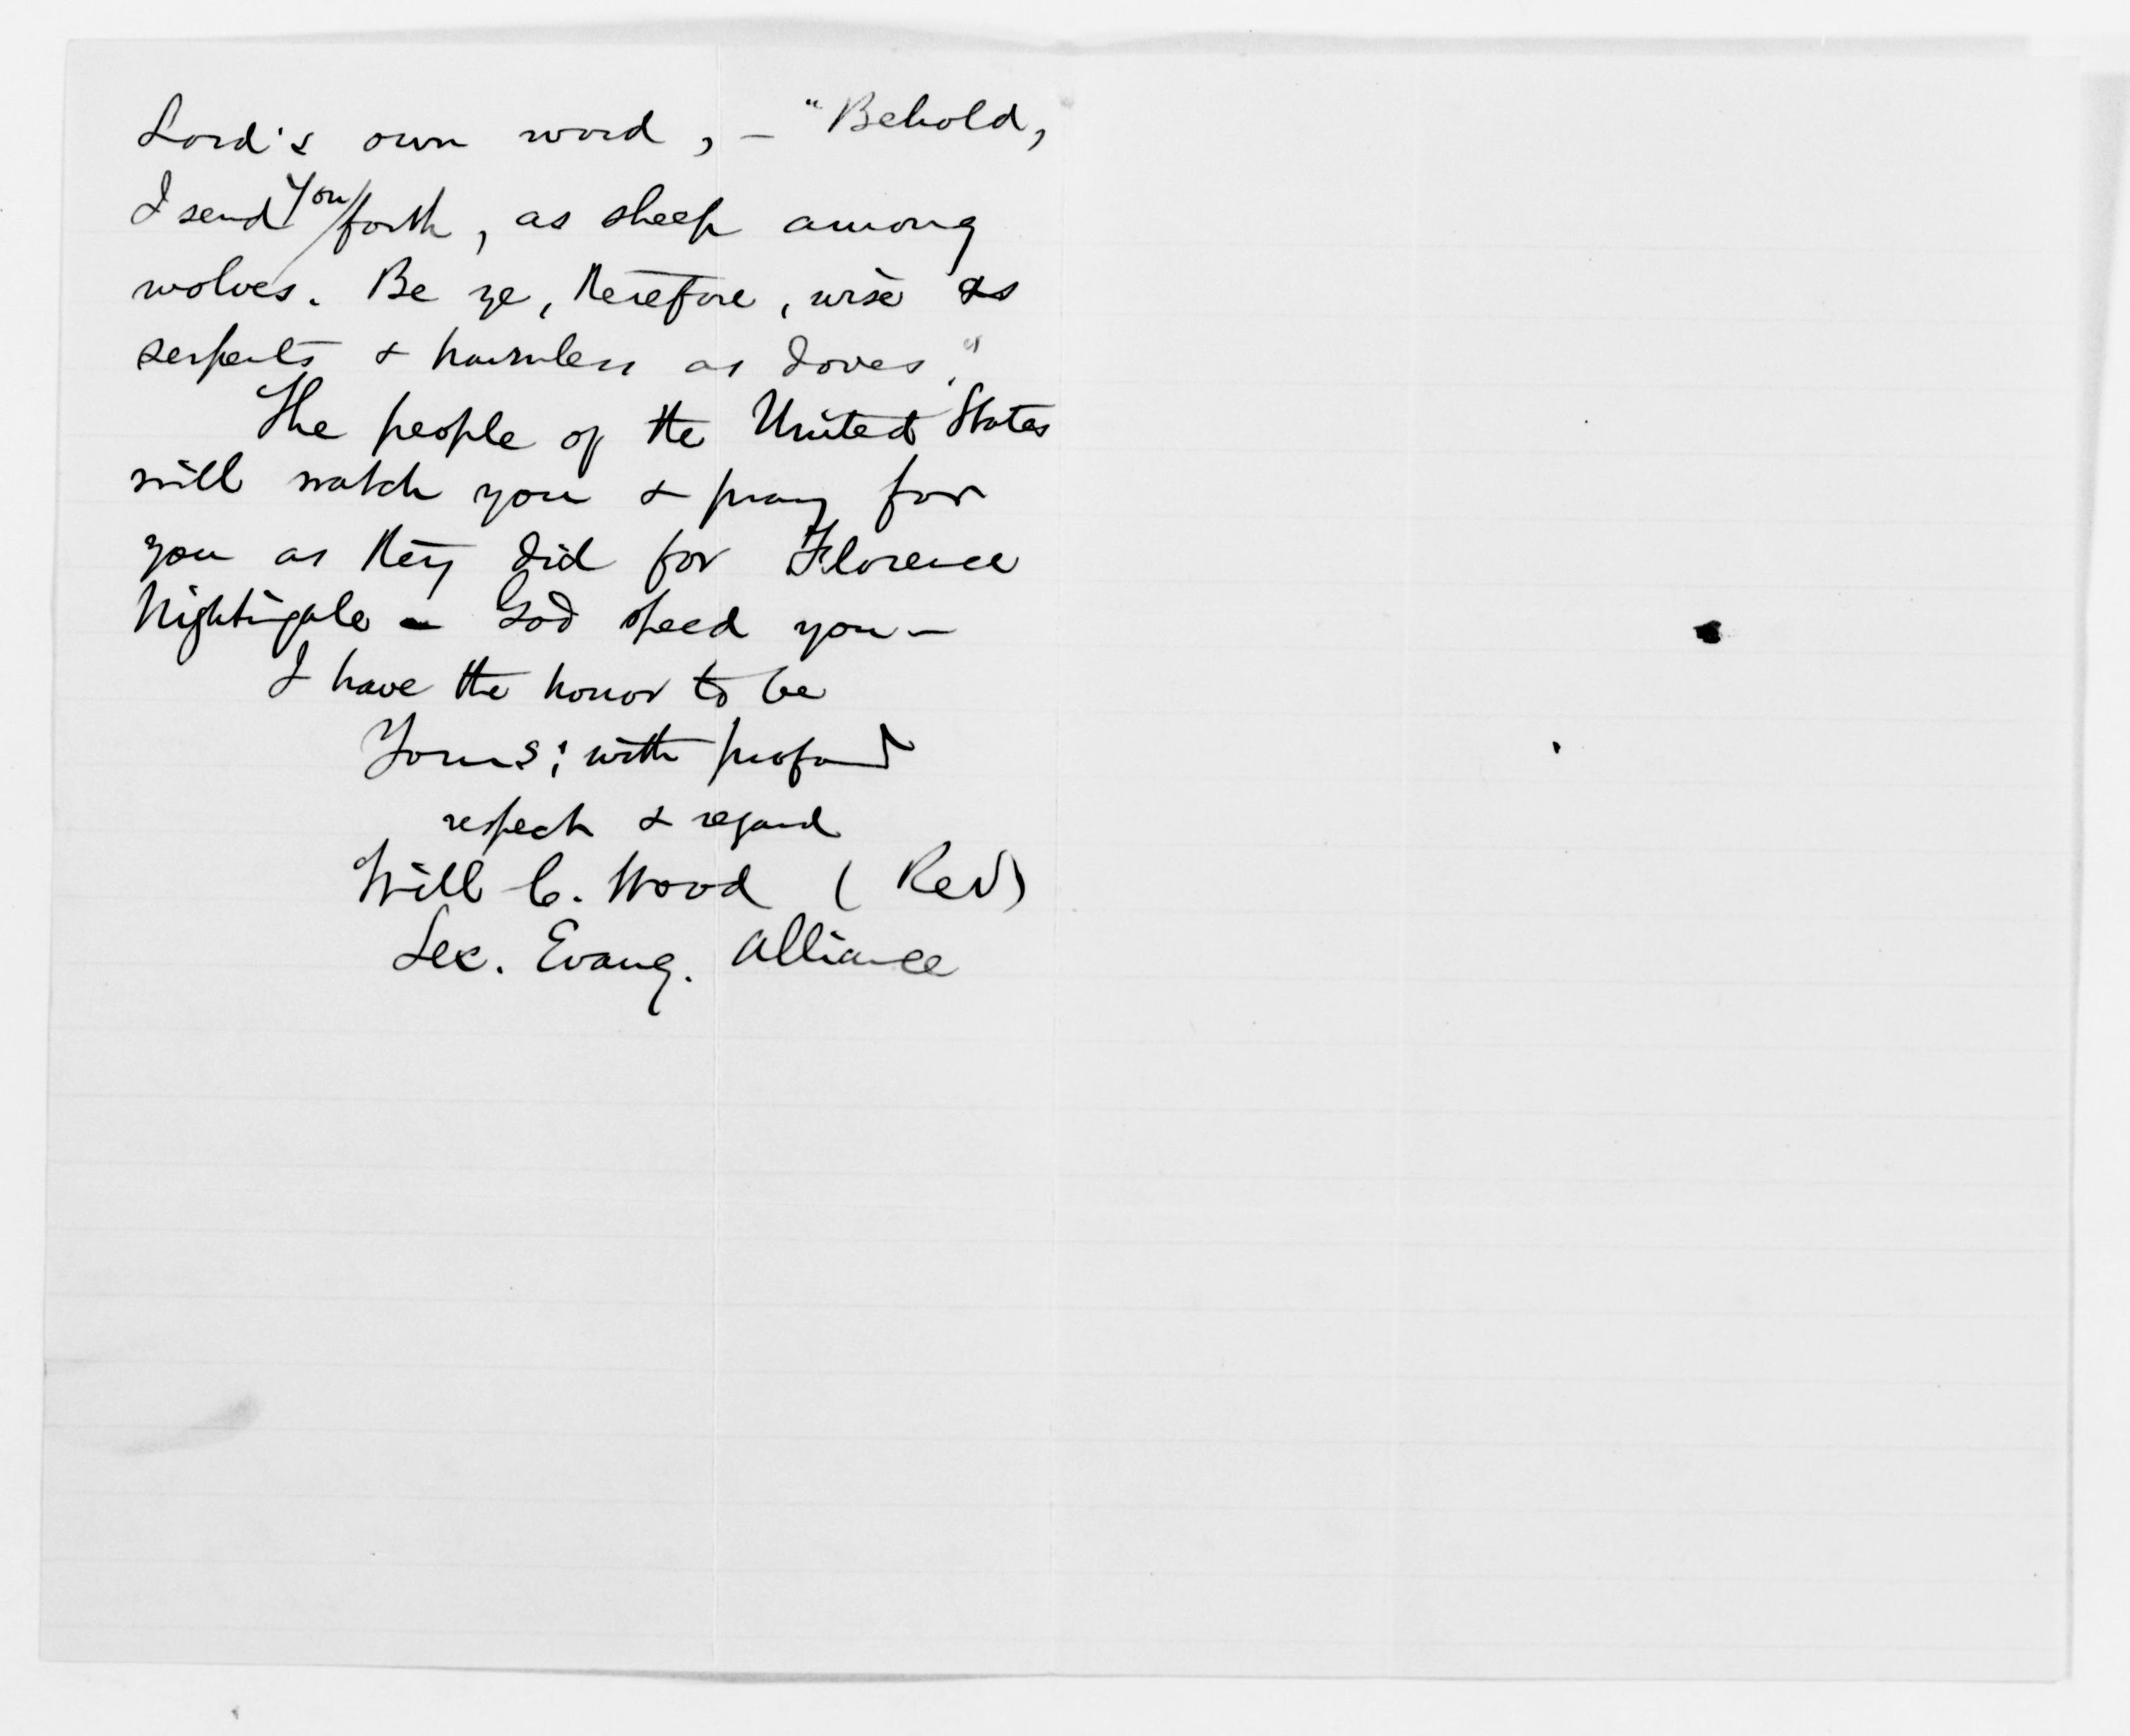 Lord's own word, - "Behold,
I send you forth, as sheep among
wolves. Be ye, therefore, wise as
serpents & harmless as doves."
The people of the United States
will watch you & pray for
you as they did for Florence
Nightingale - God speed you -
I have the honor to be
Yours; with profound
respect & regard
Will C. Wood (Rev)
Sec. Evang. Alliance